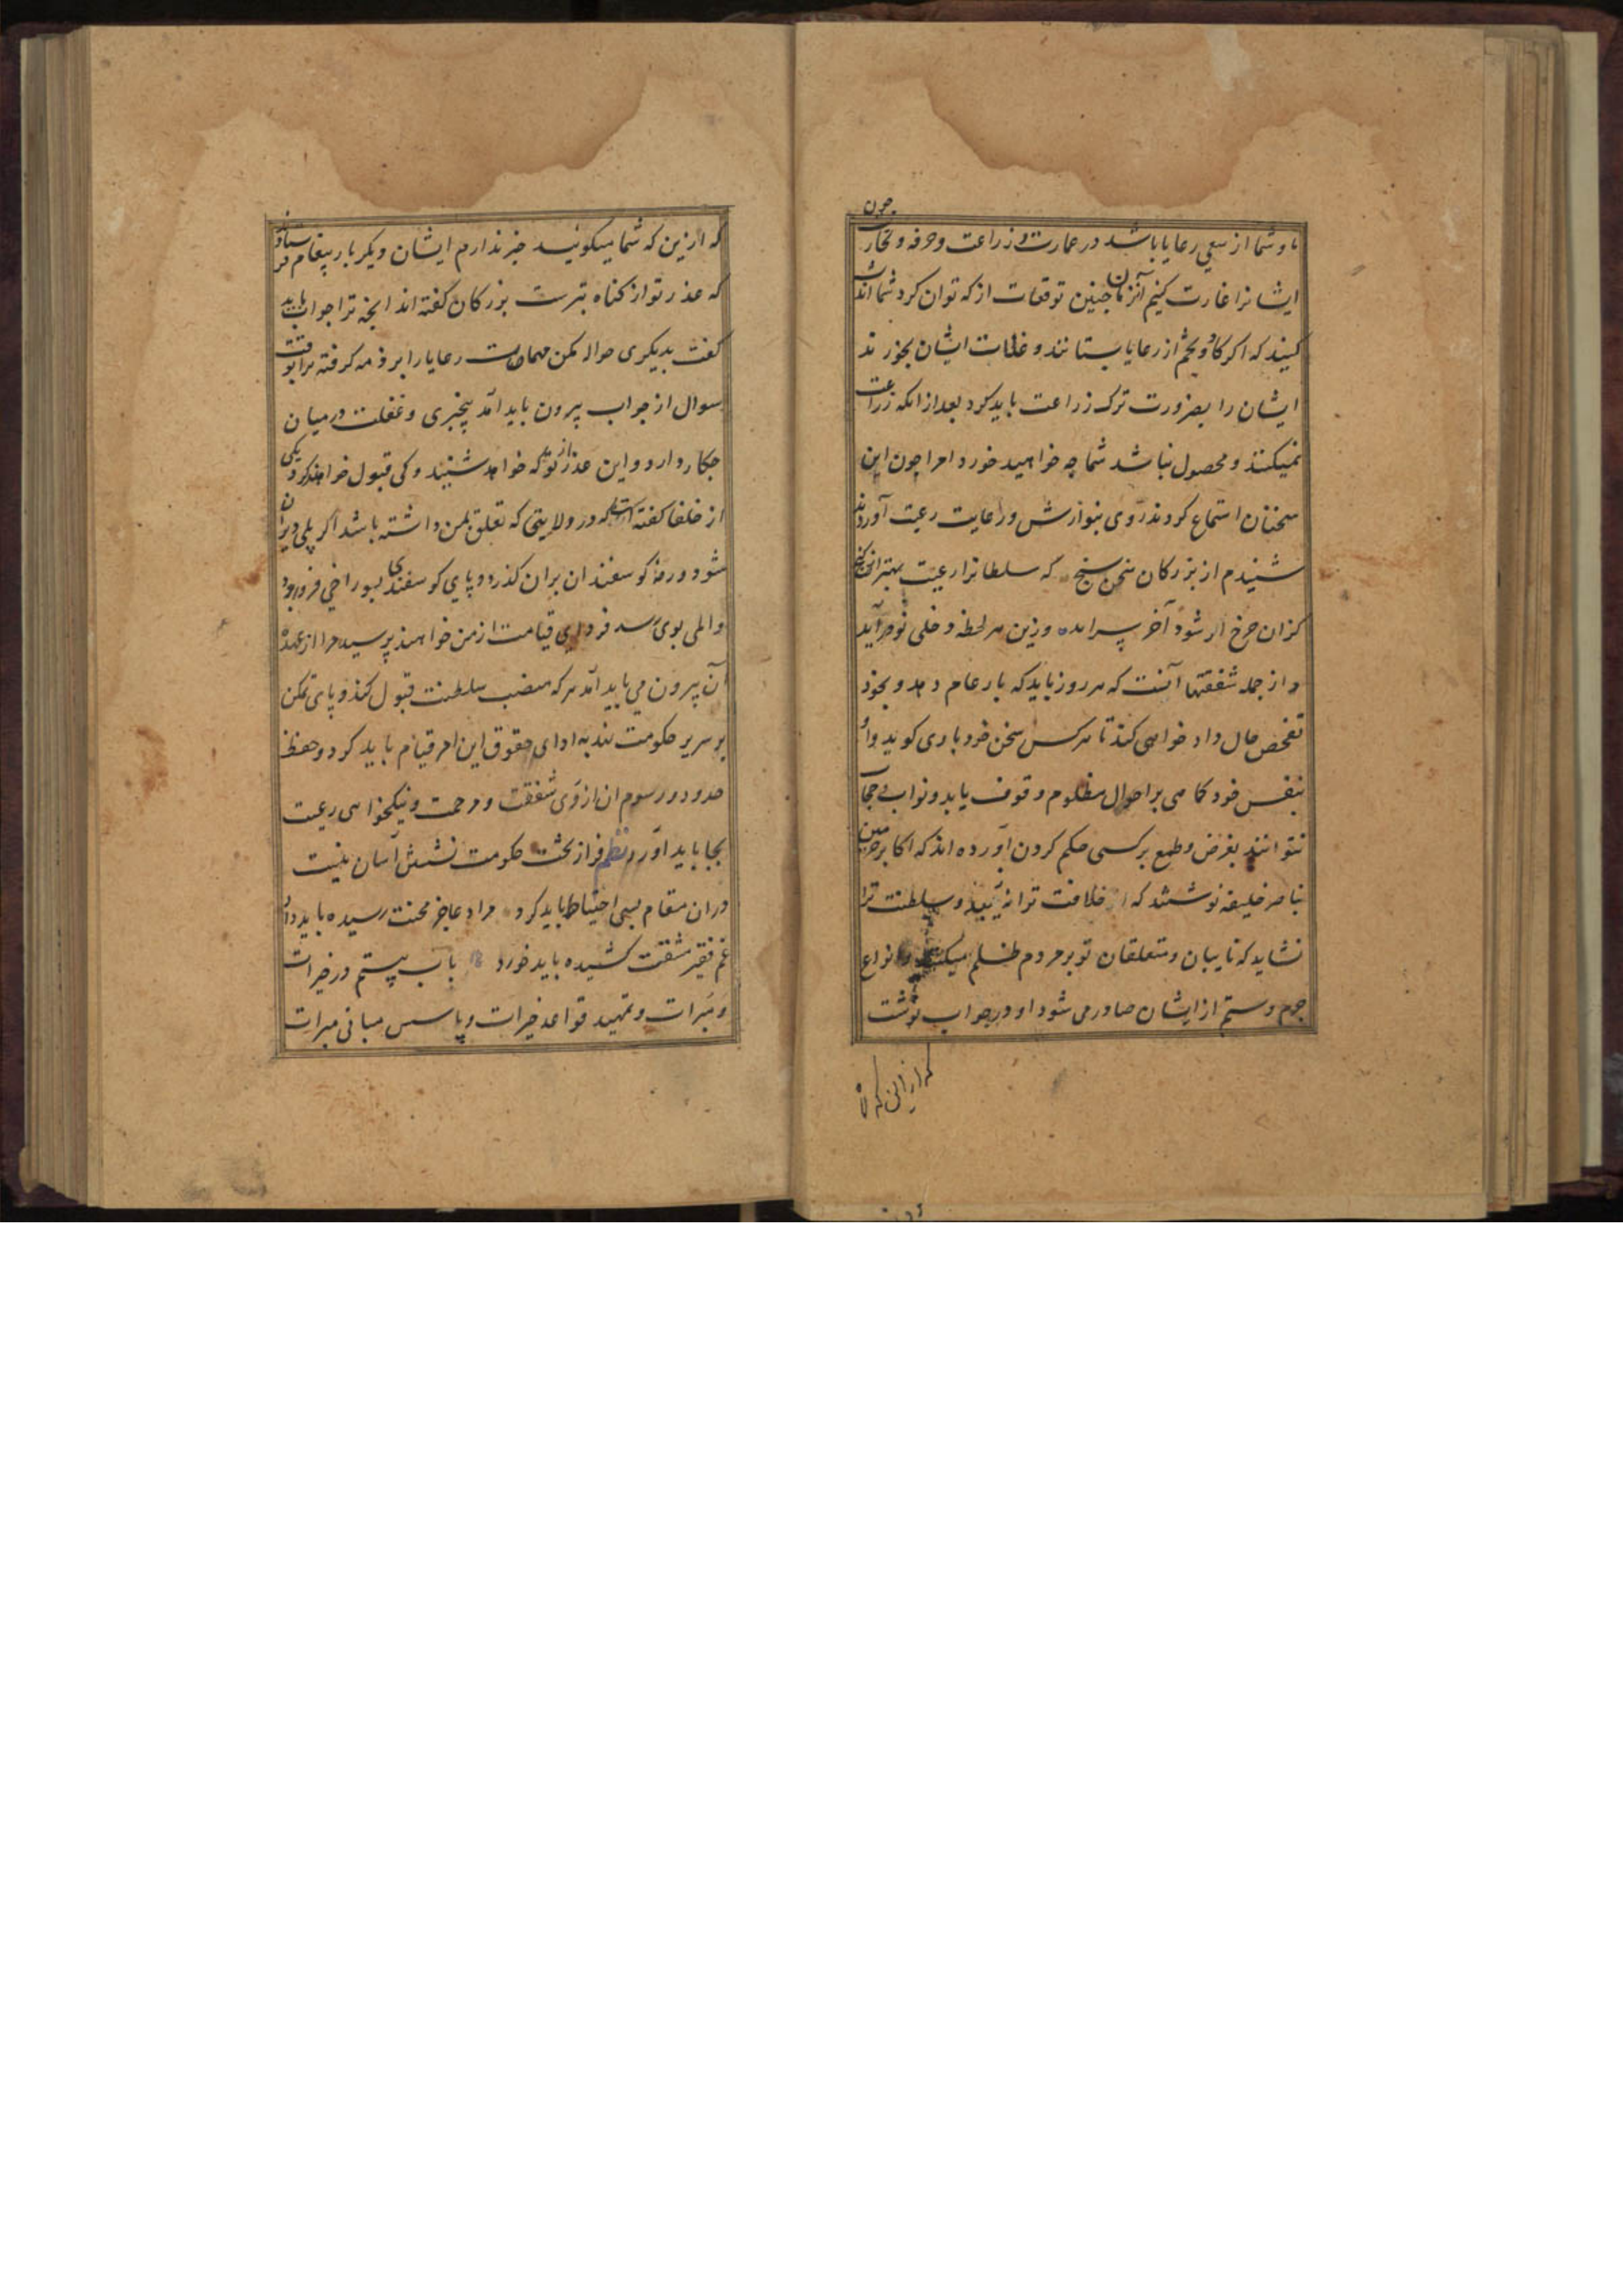 چون
ما و شما از سعی رعایا باشد در عمارت و زراعت و حرفه و تجارت
ایشانرا غارت کنیم آنزمان چنین توقعات از که توان کرد شما اندیشه
کنید که اگر گاو و تخم از رعایا بستانند و غلهات ایشان بخورند
ایشان را بضرورت ترک زراعت باید کرد بعد از انکه زراعت
نمیکنند و محصول نباشد شما چه خواهید خورد امرا چون این
سخنان استماع کردند روی بنوازش و رعایت رعیت آوردند
شنیدم از بزرکان سخن سنج که سلطانرا رعیت بهتر از کنج
کزان خرج ار شود آخر سراید و زین هر لحظه دخلی نو درآید
و از جمله شفقتها آنست که هر روز باید که بار عام دهد و بخود
تفحص حال دادخواهی کند تا هر کس سخن خود باری کوید و او
بنفس خود کماهی بر احوال مظلوم وقوف یابد و نواب و حجاب
نتوانند بغرض و طمع بر کسی حکم کردن آورده اند که اکابر حرمین
بناصر خلیفه نوشتند که خلافت ترا نزیبد و سلطنت ترا
نشاید که نایبان و متعلقان تو بر مردم ظلم میکنند و انواع
جرم و ستم از ایشان صادر می شود او در جواب نوشت
که ازین که
که ازین که شما میکوئید خبر ندارم ایشان دیکر بار پیغام فرستادند
که عذر تو از کناه بترست بزرکان کفته اند انچه ترا جواب باید
کفت بدیکری حواله مکن مهمات رعایا را بر ذمه کرفته بوقت
سوال از جواب بیرون باید آمد بیخبری و غفلت درمیان
چکار دارد و این عذر از تو که خواهد شنید و کی قبول خواهد کرد یکی
از خلفا کفته است که در ولایتی که تعلق بمن داشته باشد اکر پلی ویران
شود و رمه کوسفندان بران کذرد و پای کوسفندی بسوراخی فرو رود
و المی بوی رسد فردای قیامت از من خواهند پرسید مرا از عهده
آن بیرون می باید آمد هر که منصب سلطنت قبول کند و پای تمکن
بر سریر حکومت نهد به ادای حقوق این امر قیام باید کرد و حفظ
حدود و رسوم ان از روی شفقت و مرحمت و نیکخواهی رعیت
بجا باید آورد نظم فراز تخت حکومت نشستن آسان نیست
دران مقام بسی احتیاط باید کرد مراد عاجز محنت رسیده باید داد
غم فقیر مشقت کشیده باید خورد باب بیستم در خیرات
و مبرات و تمهید قواعد خیرات و تاسیس مبانی مبرات